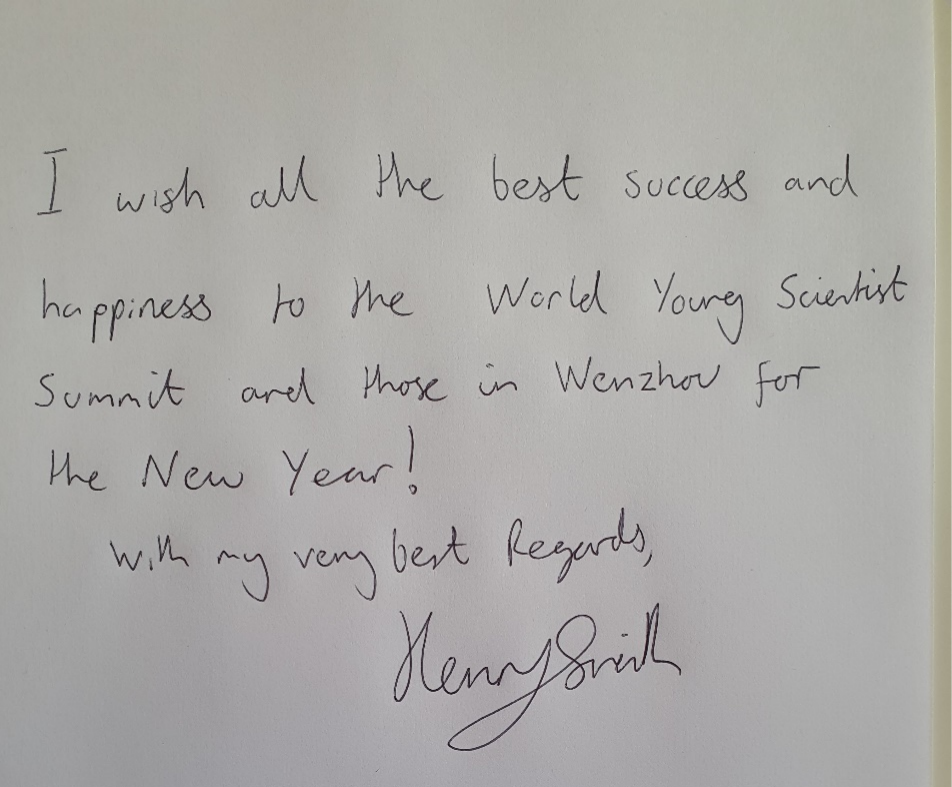 I wish all the best success and
happiness to the World Young Scientist
Summit and those in Wenzhou for
the New Year!
With my very best Regards,
Henry Smith